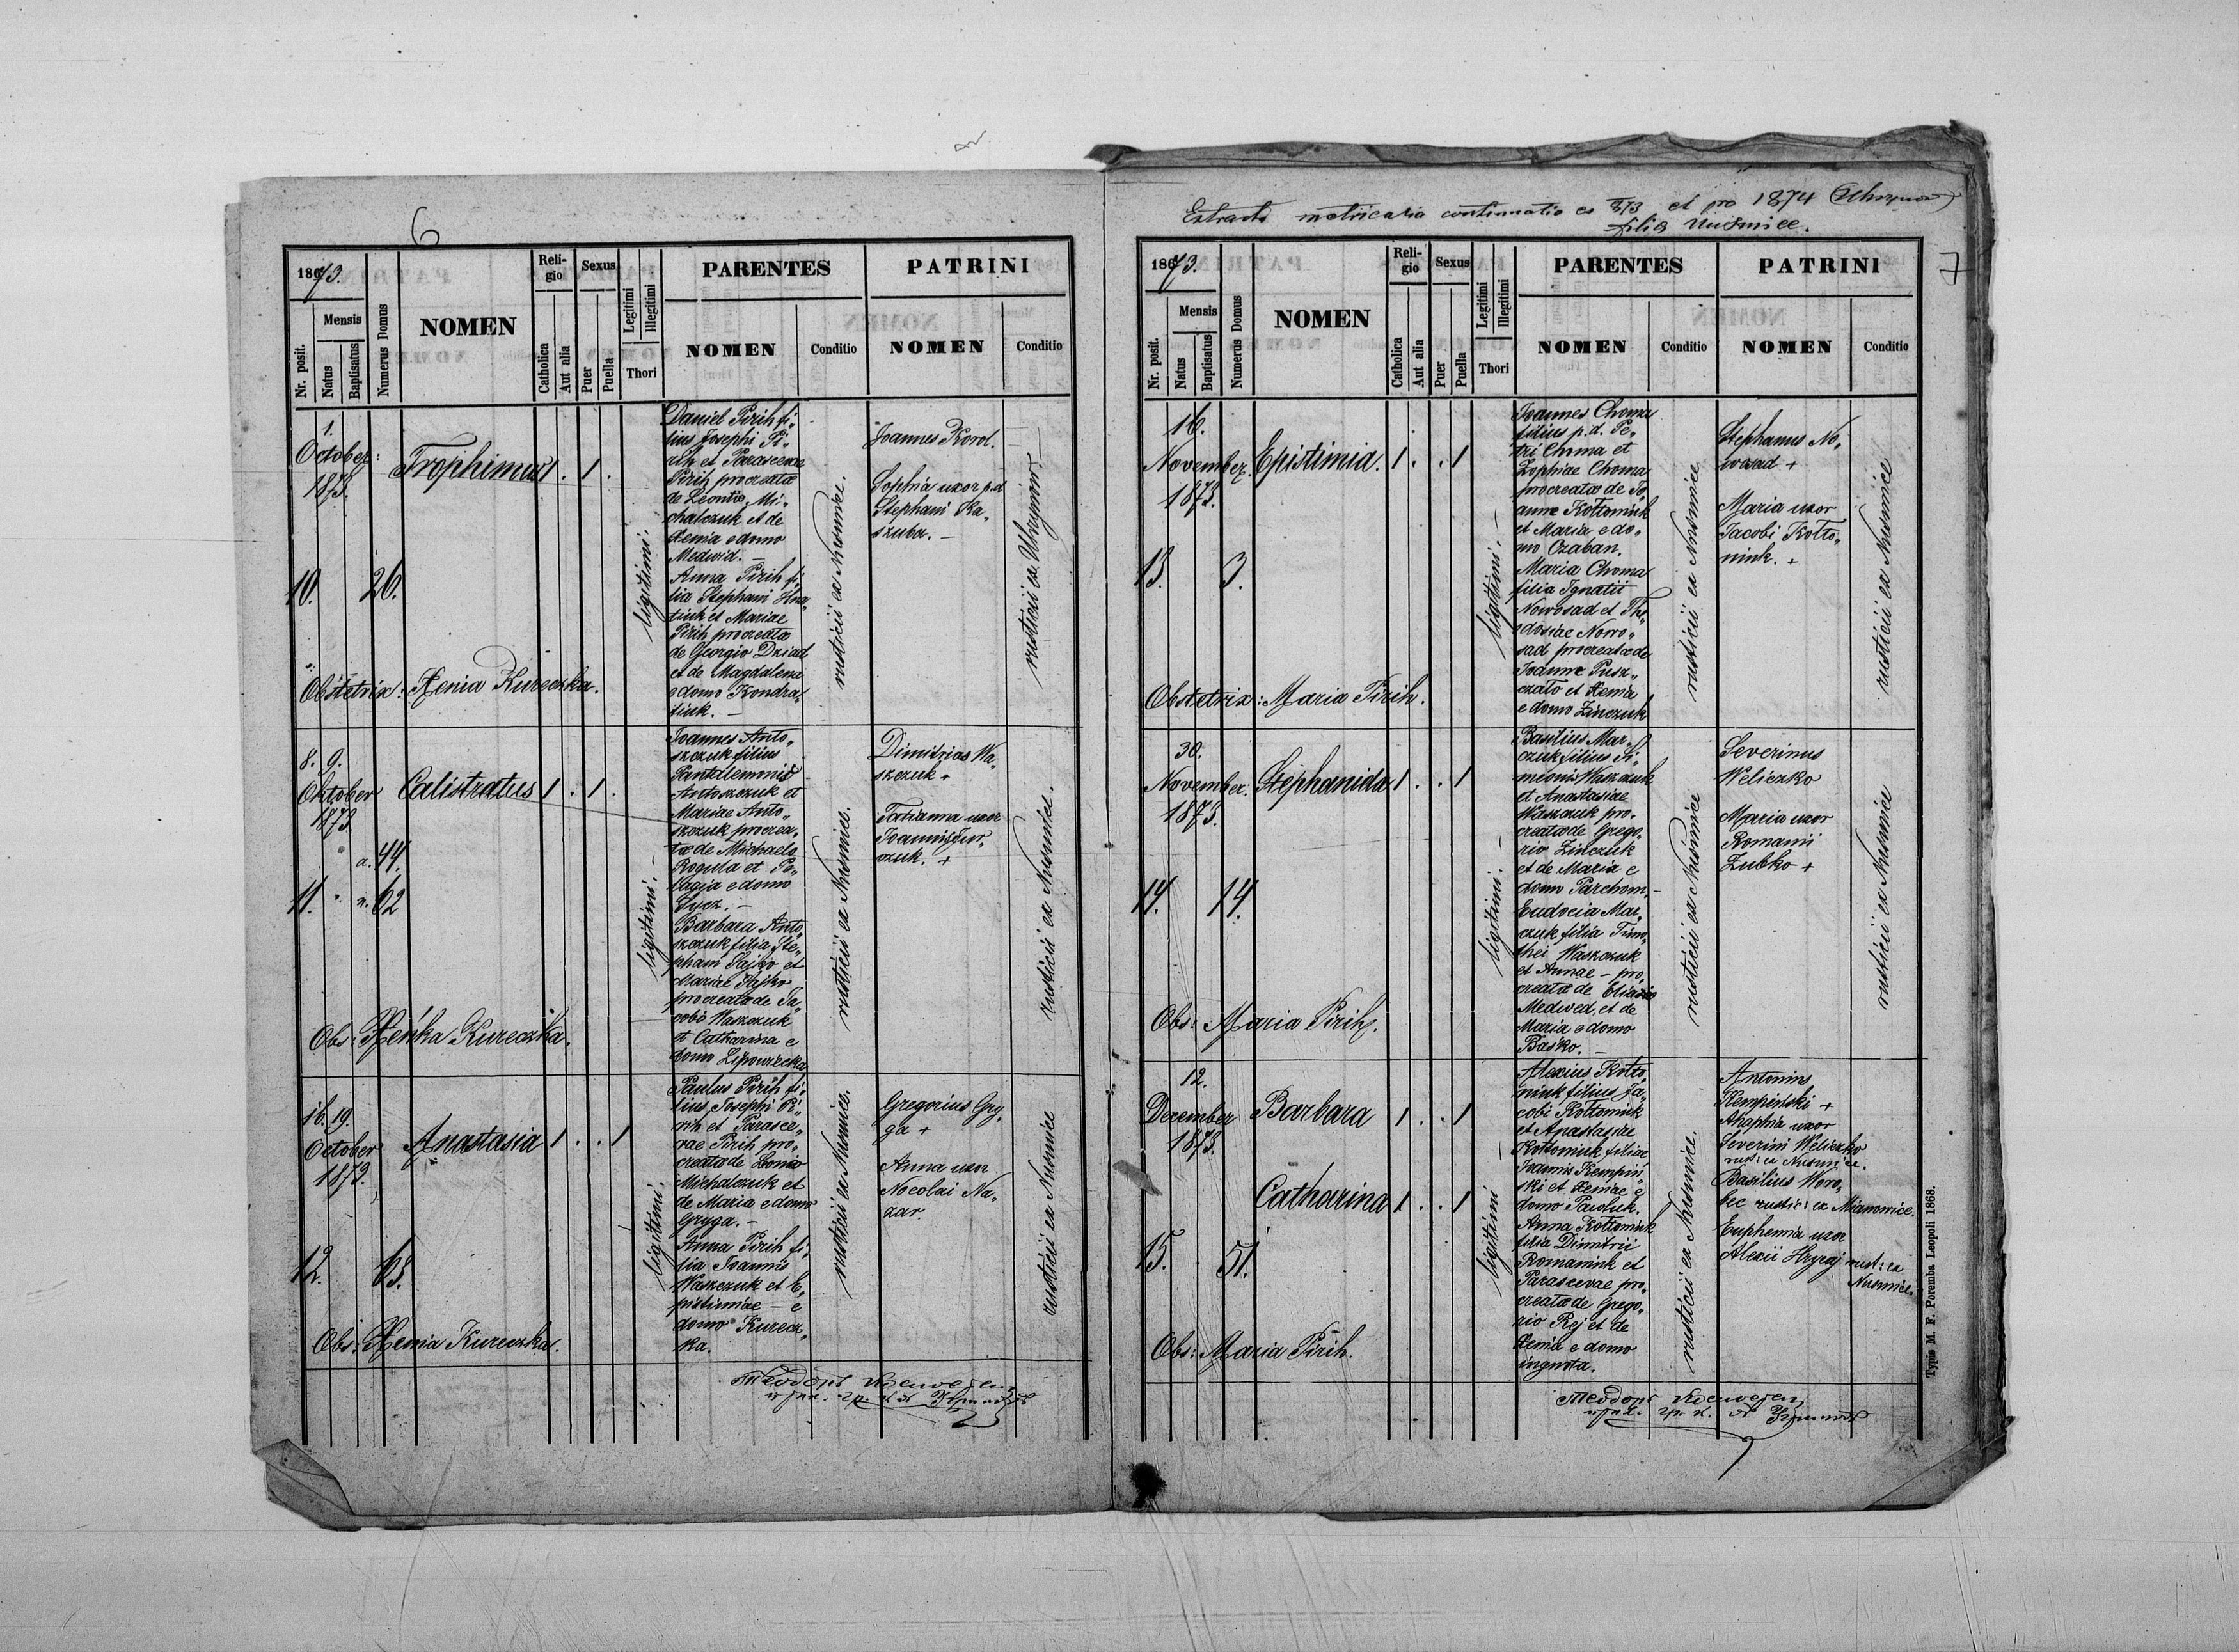 6
1873.
Nr. posit.
Mensis
Natus
Baptisatus
Numerus Domus
NOMEN
Reli-
gio
Catholica
Aut alia
Sexus
Puer
Puella
Legitimi
Illegitimi
Thori
PARENTES
NOMEN
Conditio
PATRINI
NOMEN
Conditio
1.
October
1873.
10.
26.
Trophimus
1 . 1 .
legitimi.
Daniel Pirih fi„
lius Josephi Pi„
rih et Parascevae
Pirih procreatae
de Leontio Mi„
chalczuk et de
Xenia e domo
Medwid. —
Anna Pirih fi„
lia Stephani Hna„
tiuk et Mariae
Pirih procreatae
de Georgio Dziad
et de Magdalena
e domo Kondra„
tiuk. —
rusticii ex Nusmice.
Joannes Korol.
Sophia uxor p.d.
Stephani Ka„
szuba. —
rusticii ex Uhrynow —
Obstetrix: Xenia Kureczka.
8. 9.
Oktober
1873.
a. 44.
11.
n. 62
Calistratus
1 . 1 .
legitimi. —
Joannes Anto„
szczuk filius
Pantelemonis
Antoszczuk et
Mariae Anto„
szczuk procrea„
tae de Michaelo
Rogula et Pe„
lagia e domo
Sycz. —
Barbara Anto„
szczuk filia Ste„
phani Fajko et
Mariae Fajko
procreatae de Ja„
cobi Waszczuk
et Catharina e
domo Lipowiecka
rusticii ex Nusmice.
Dimitrius Wa„
szczuk +
Tatianna uxor
Joannis Jur„
czuk. +
rusticii ex Nusmice.
Obs: Xeńka Kureczka.
16. 19.
October
1873.
12.
63.
Anastasia
1 . . 1
legitimi.
Paulus Pirih fi„
lius Josephi Pi„
rih et Parasce„
vae Pirih pro„
creatae de Leonio
Michalczuk et
de Maria e domo
Gryga. —
Anna Pirih fi„
lia Joannis
Waszczuk et E„
pistimiae — e
domo Kurecz„
ka.
rusticii ex Nusmice.
Gregorius Gry„
ga +
Anna uxor
Nocolai Na„
zar.
rusticii ex Nusmice
Obs: Xenia Kureczka.
Extractus metricalis continuatio ex 873 et pro 1874 Uhrynow
filia Nusmice.
7
1873.
Nr. posit.
Mensis
Natus
Baptisatus
Numerus Domus
NOMEN
Reli-
gio
Catholica
Aut alia
Sexus
Puer
Puella
Legitimi
Illegitimi
Thori
PARENTES
NOMEN
Conditio
PATRINI
NOMEN
Conditio
16.
November.
1873.
13.
3.
Epistimia.
1 . . 1
legitimi. —
Joannes Choma
filius p.d. Pe„
tri Choma et
Zophiae Choma
procreatae de Jo„
anne Kottoniuk
et Maria e do„
mo Czaban.
Maria Choma
filia Ignatii
Nowosad et The„
odosiae Nowo„
sad procreatae de
Joanne Pusz„
czało et Xenia
e domo Zinczuk
rusticii ex Nusmice
Stephanus No„
wosad +
Maria uxor
Jacobi Kotto„
niuk. +
rusticii ex Nusmice
Obstetrix: Maria Pirih.
30.
November.
1873.
14.
14.
Stephanida
1 . . 1
legitimi. —
Basilius Mar„
czuk filius Si„
meonis Waszczuk
et Anastasiae
Waszczuk pro„
creatae de Grego„
rio Zinczuk
et de Maria e
domo Parchom. —
Eudocia Mar„
czuk filia Timo„
thei Waszczuk
et Annae — pro„
creatae de Eliasio
Medwed, et de
Maria e domo
Baśko. —
rusticii ex Nusmice
Severinus
Weliczko
Maria uxor
Romanii
Zubko +
rusticii ex Nusmice
Obs: Maria Pirih.
12.
December
1873.
15.
51.
Barbara
1 . . 1
Catharina
1 . . 1
legitimi
Alexius Kotto„
niuk filius Ja„
cobi Kottoniuk
et Anastasiae
Kottoniuk filiae
Joannis Kempiń„
ski et Xeniae e
domo Pawluk.
Anna Kottoniuk
filia Dimitrii
Romaniuk et
Parascevae pro„
creatae de Grego„
rio Rej et de
Xenia e domo
ingnota.
rusticii ex Nusmice.
Antonius
Kempiński +
Ahaphia uxor
Severini Weliczko
rust: ex Nusmice.
Basilius Woro„
bec rustic: ex Mianowice.
Euphemia uxor
Alexii Hryzaj rust: ex
Nusmice.
Obs: Maria Pirih.
Typis M. F. Poremba Leopoli 1868.